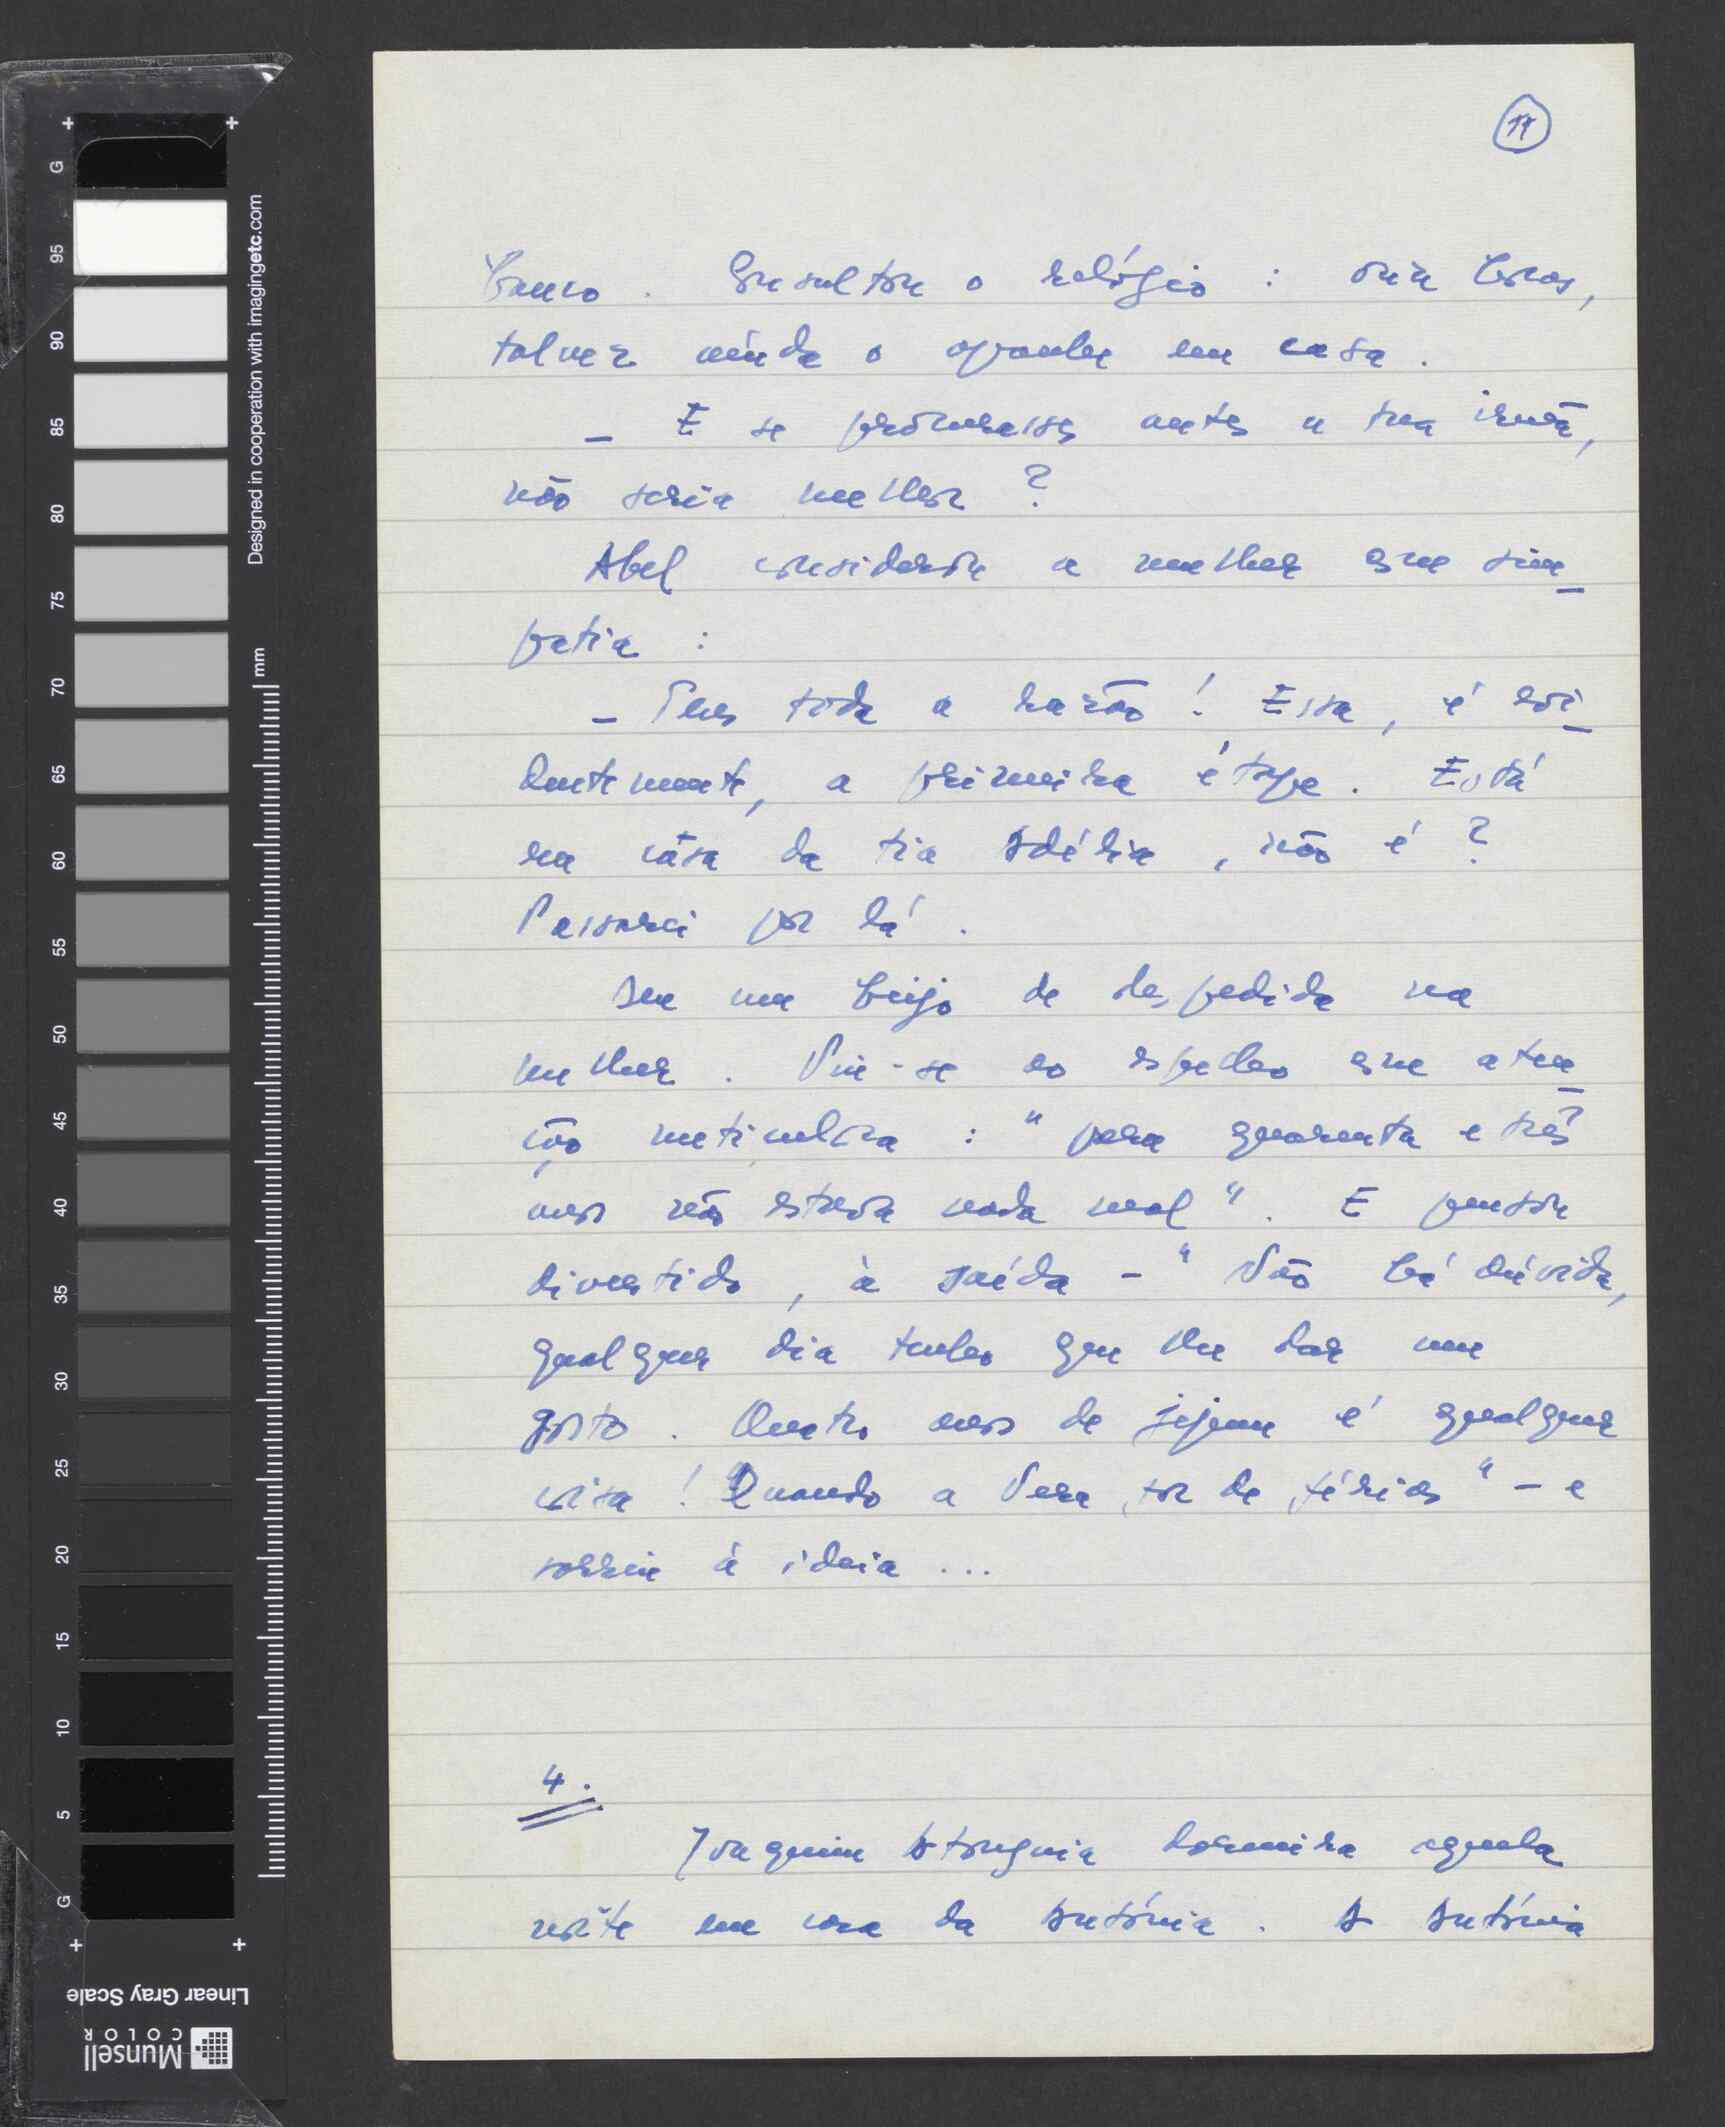 11
Banco. Consultou o relógio: oito horas,
talvez ainda o apanhe em casa.
— E se procurasses antes a tua irmã,
não seria melhor?
Abel considerou a mulher com sim-
patia:
— Tens toda a razão! Essa, é evi-
dentemente, a primeira étape. Está
na casa da tia Adélia, não é?
Passarei por lá.
Deu um beijo de despedida na
mulher. Viu-se ao espelho com aten-
ção meticulosa: "para quarenta e três
anos não estava nada mal". E pensou
divertido, à saída — "Não há dúvida,
qualquer dia tenho que lhe dar um
gosto. Quatro anos de jejum é qualquer
coisa! Quando a Vera for de férias" — e
sorriu à ideia...
4.
Joaquim dormira aquela
noite em casa da Antónia. A Antónia
G 95 90 85 80 75 70 65 60 55 50 45 40 35 30 25 20 15 10 5 G
Designed in cooperation with imagingetc.com
mm
Linear Gray Scale
Munsell
COLOR